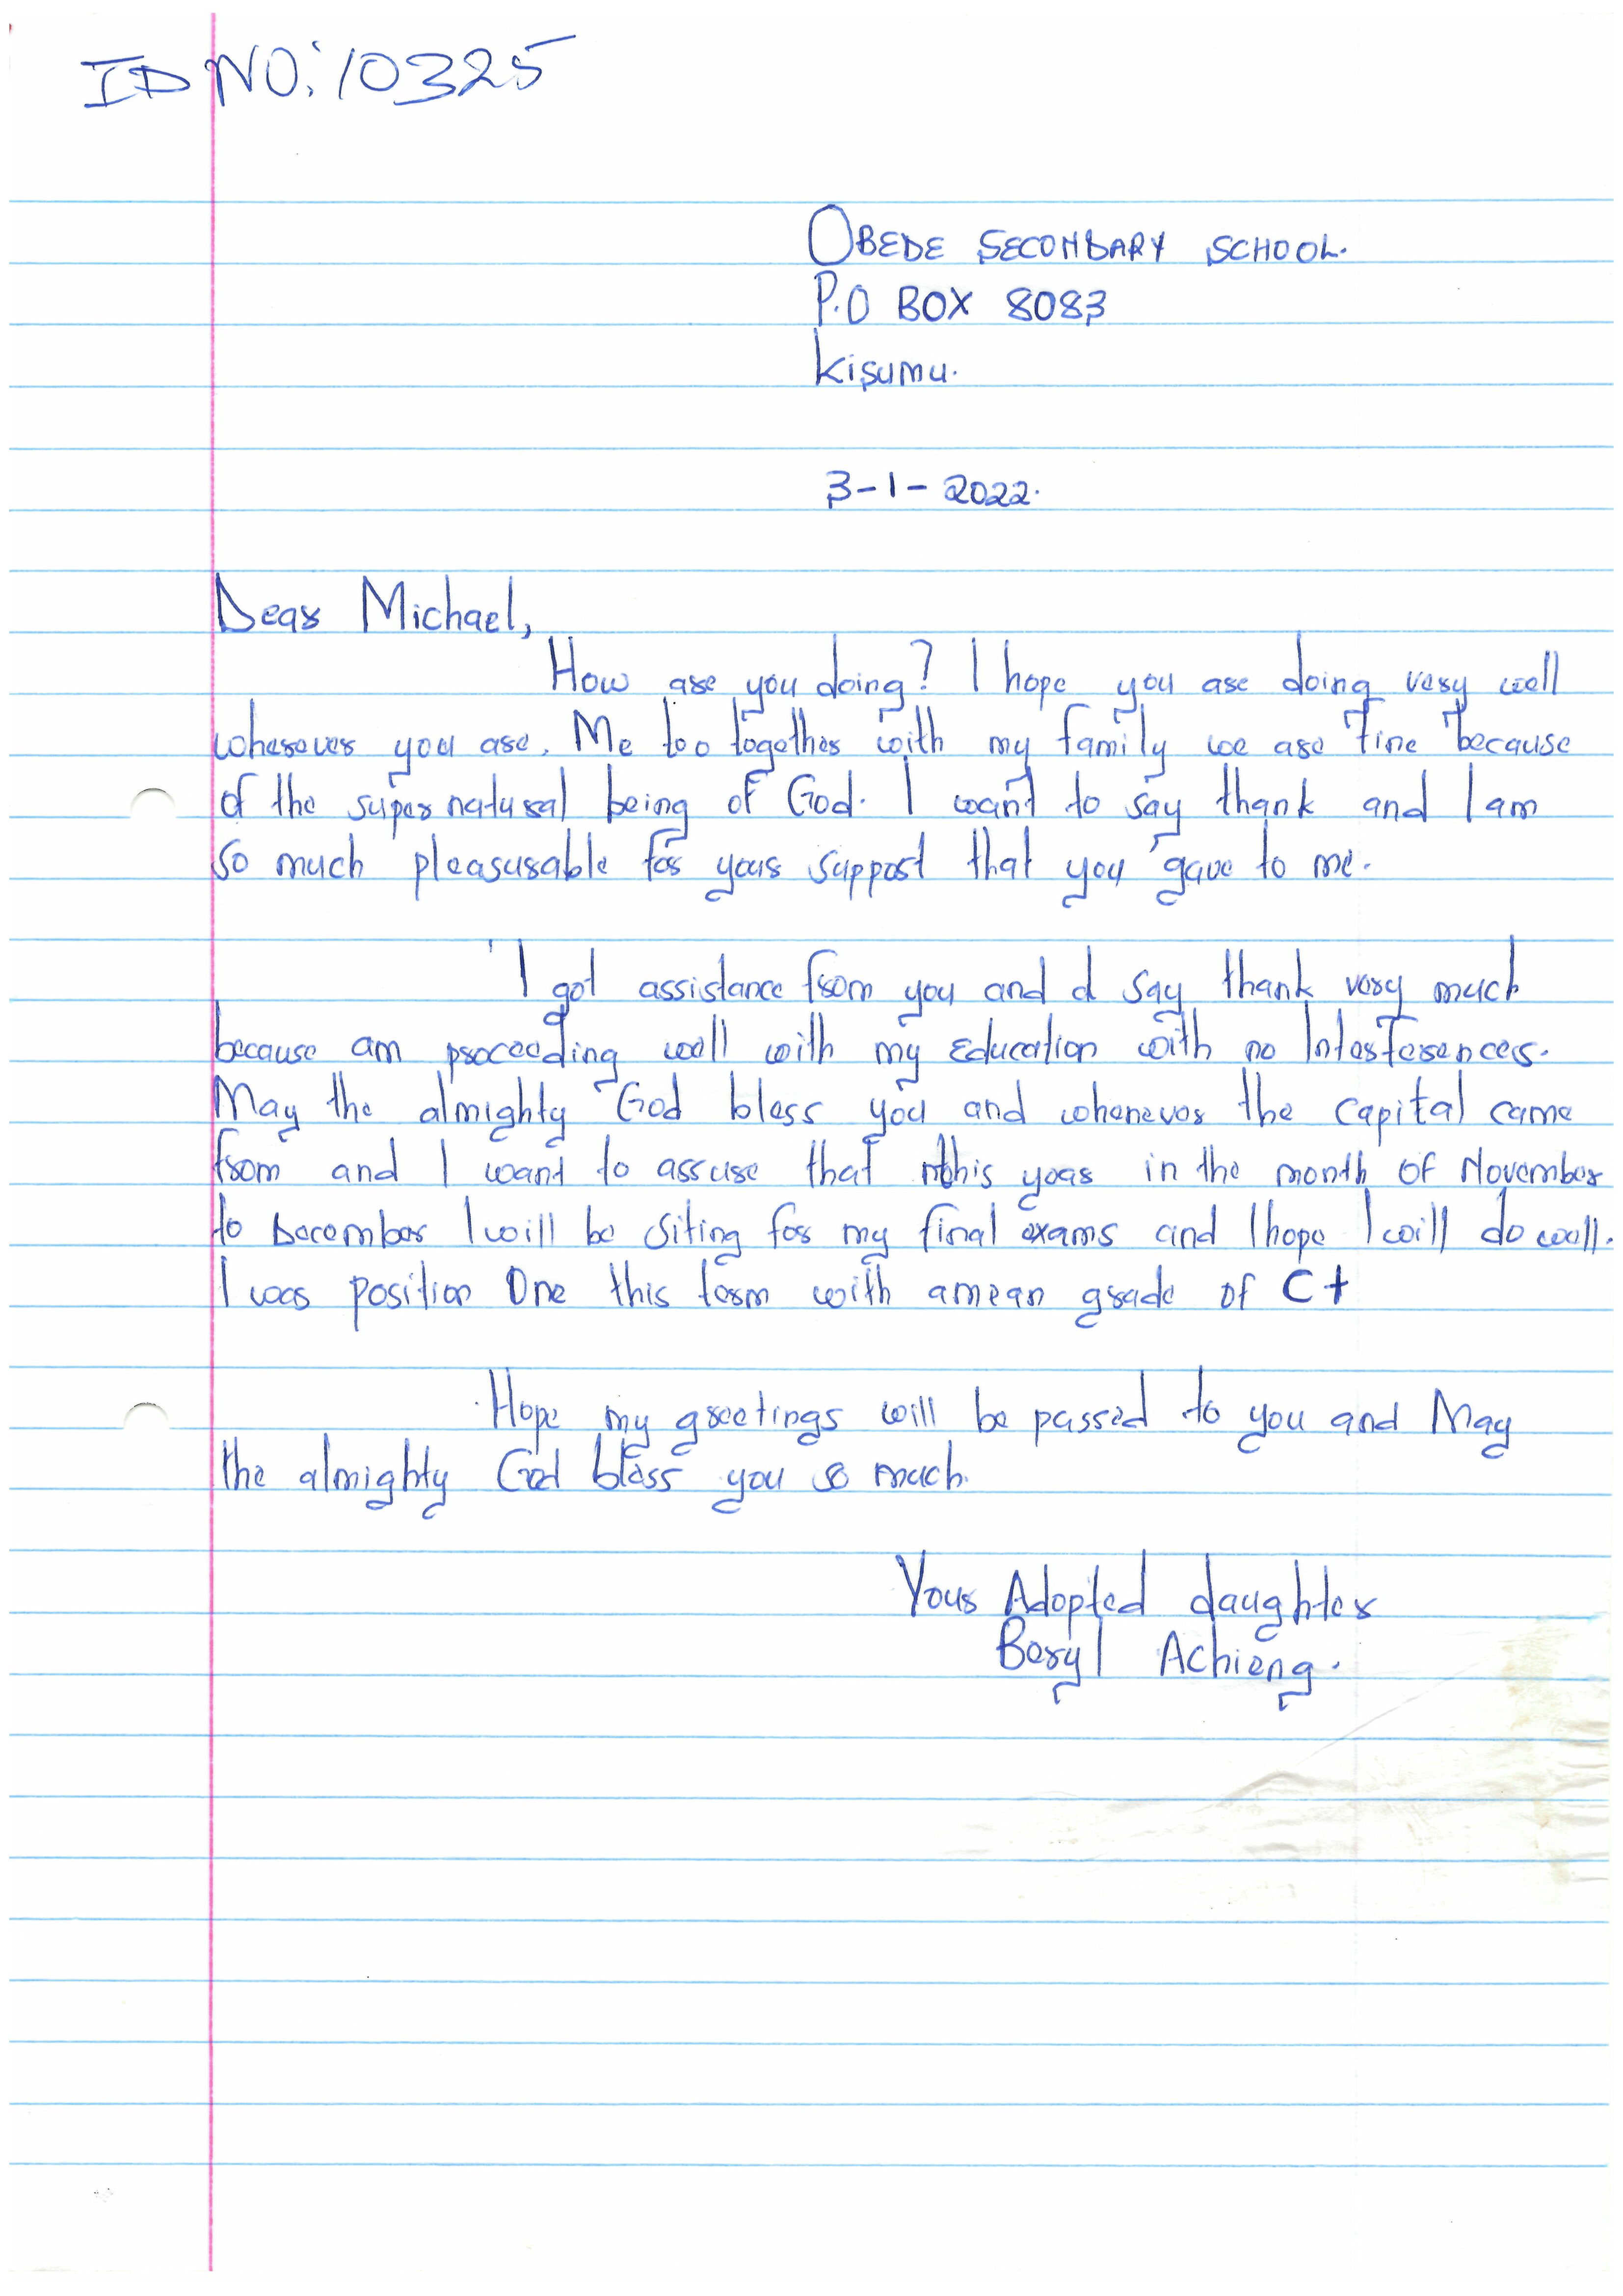 ID NO: 10325
OBEDE SECONDARY SCHOOL.
P.O BOX 8083
Kisumu.
3-1-2022.
Dear Michael,
How are you doing? I hope you are doing very well
wherever you are. Me too together with my family we are fine because
of the super natural being of God. I want to say thank and I am
so much pleasurable for your support that you gave to me.
I got assistance from you and I say thank very much
because am proceeding well with my Education with no Interferences.
May the almighty God bless you and whenever the capital came
from and I want to assure that this year in the month of November
to December I will be siting for my final exams and I hope I will do well.
I was position One this term with amean grade of C+
Hope my greetings will be passed to you and May
the almighty God bless you so much.
Your Adopted daughter
Beryl Achieng.